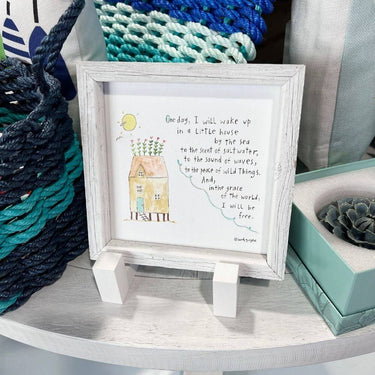 One day, I will wake up
in a little house
by the sea
to the scent of saltwater,
to the sound of waves,
to the peace of wild things.
And,
in the grace
of the world,
I will be
free.